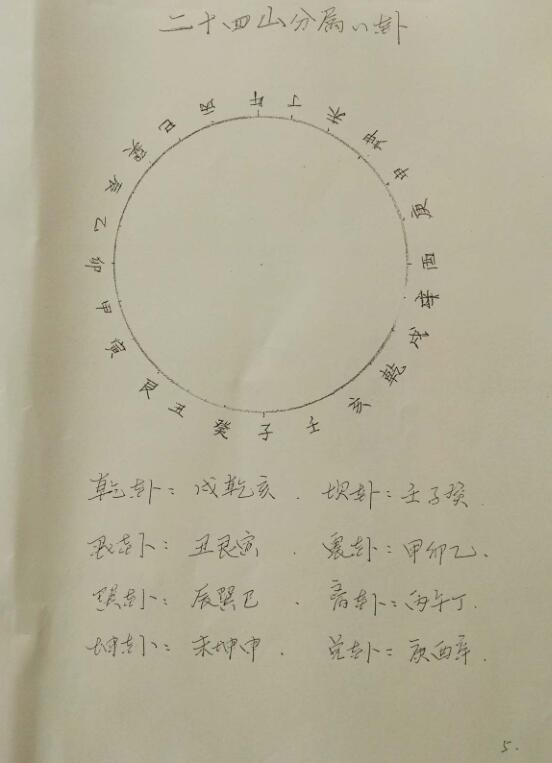 二十四山分属八卦
午 丁 未 坤 申 庚 酉 辛 戌 乾 亥 壬 子 癸 丑 艮 寅 甲 卯 乙 辰 巽 巳 丙
乾卦：戌乾亥． 坎卦：壬子癸．
艮卦：丑艮寅． 震卦：甲卯乙．
巽卦：辰巽巳． 离卦：丙午丁．
坤卦：未坤申． 兑卦：庚酉辛．
5.